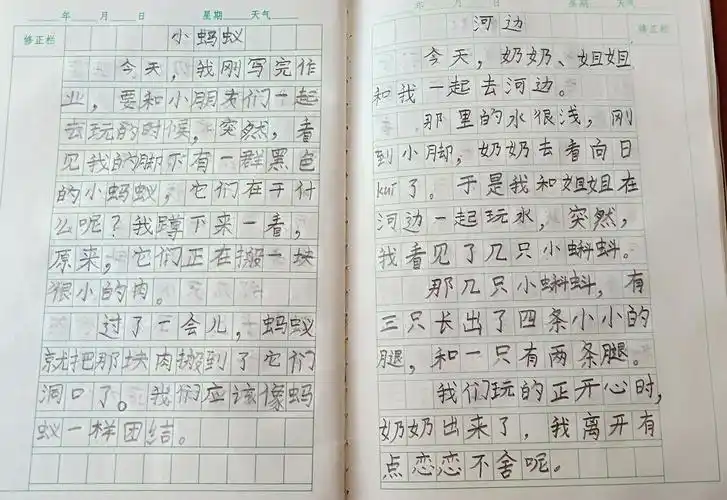 年 月 日 星期 天气
修正栏
小蚂蚁
今天，我刚写完作
业，要和小朋友们一起
去玩的时候，突然，看
见我的脚下有一群黑色
的小蚂蚁，它们在干什
么呢？我蹲下来一看，
原来，它们正在搬一块
很小的肉。
过了一会儿，蚂蚁
就把那块肉搬到了它们
洞口了。我们应该像蚂
蚁一样团结。
年 月 日 星期 天气
修正栏
河边
今天，奶奶、姐姐
和我一起去河边。
那里的水很浅，刚
到小脚，奶奶去看向日
kuí了。于是我和姐姐在
河边一起玩水，突然，
我看见了几只小蝌蚪。
那几只小蝌蚪，有
三只长出了四条小小的
腿，和一只有两条腿。
我们玩的正开心时，
奶奶出来了，我离开有
点恋恋不舍呢。